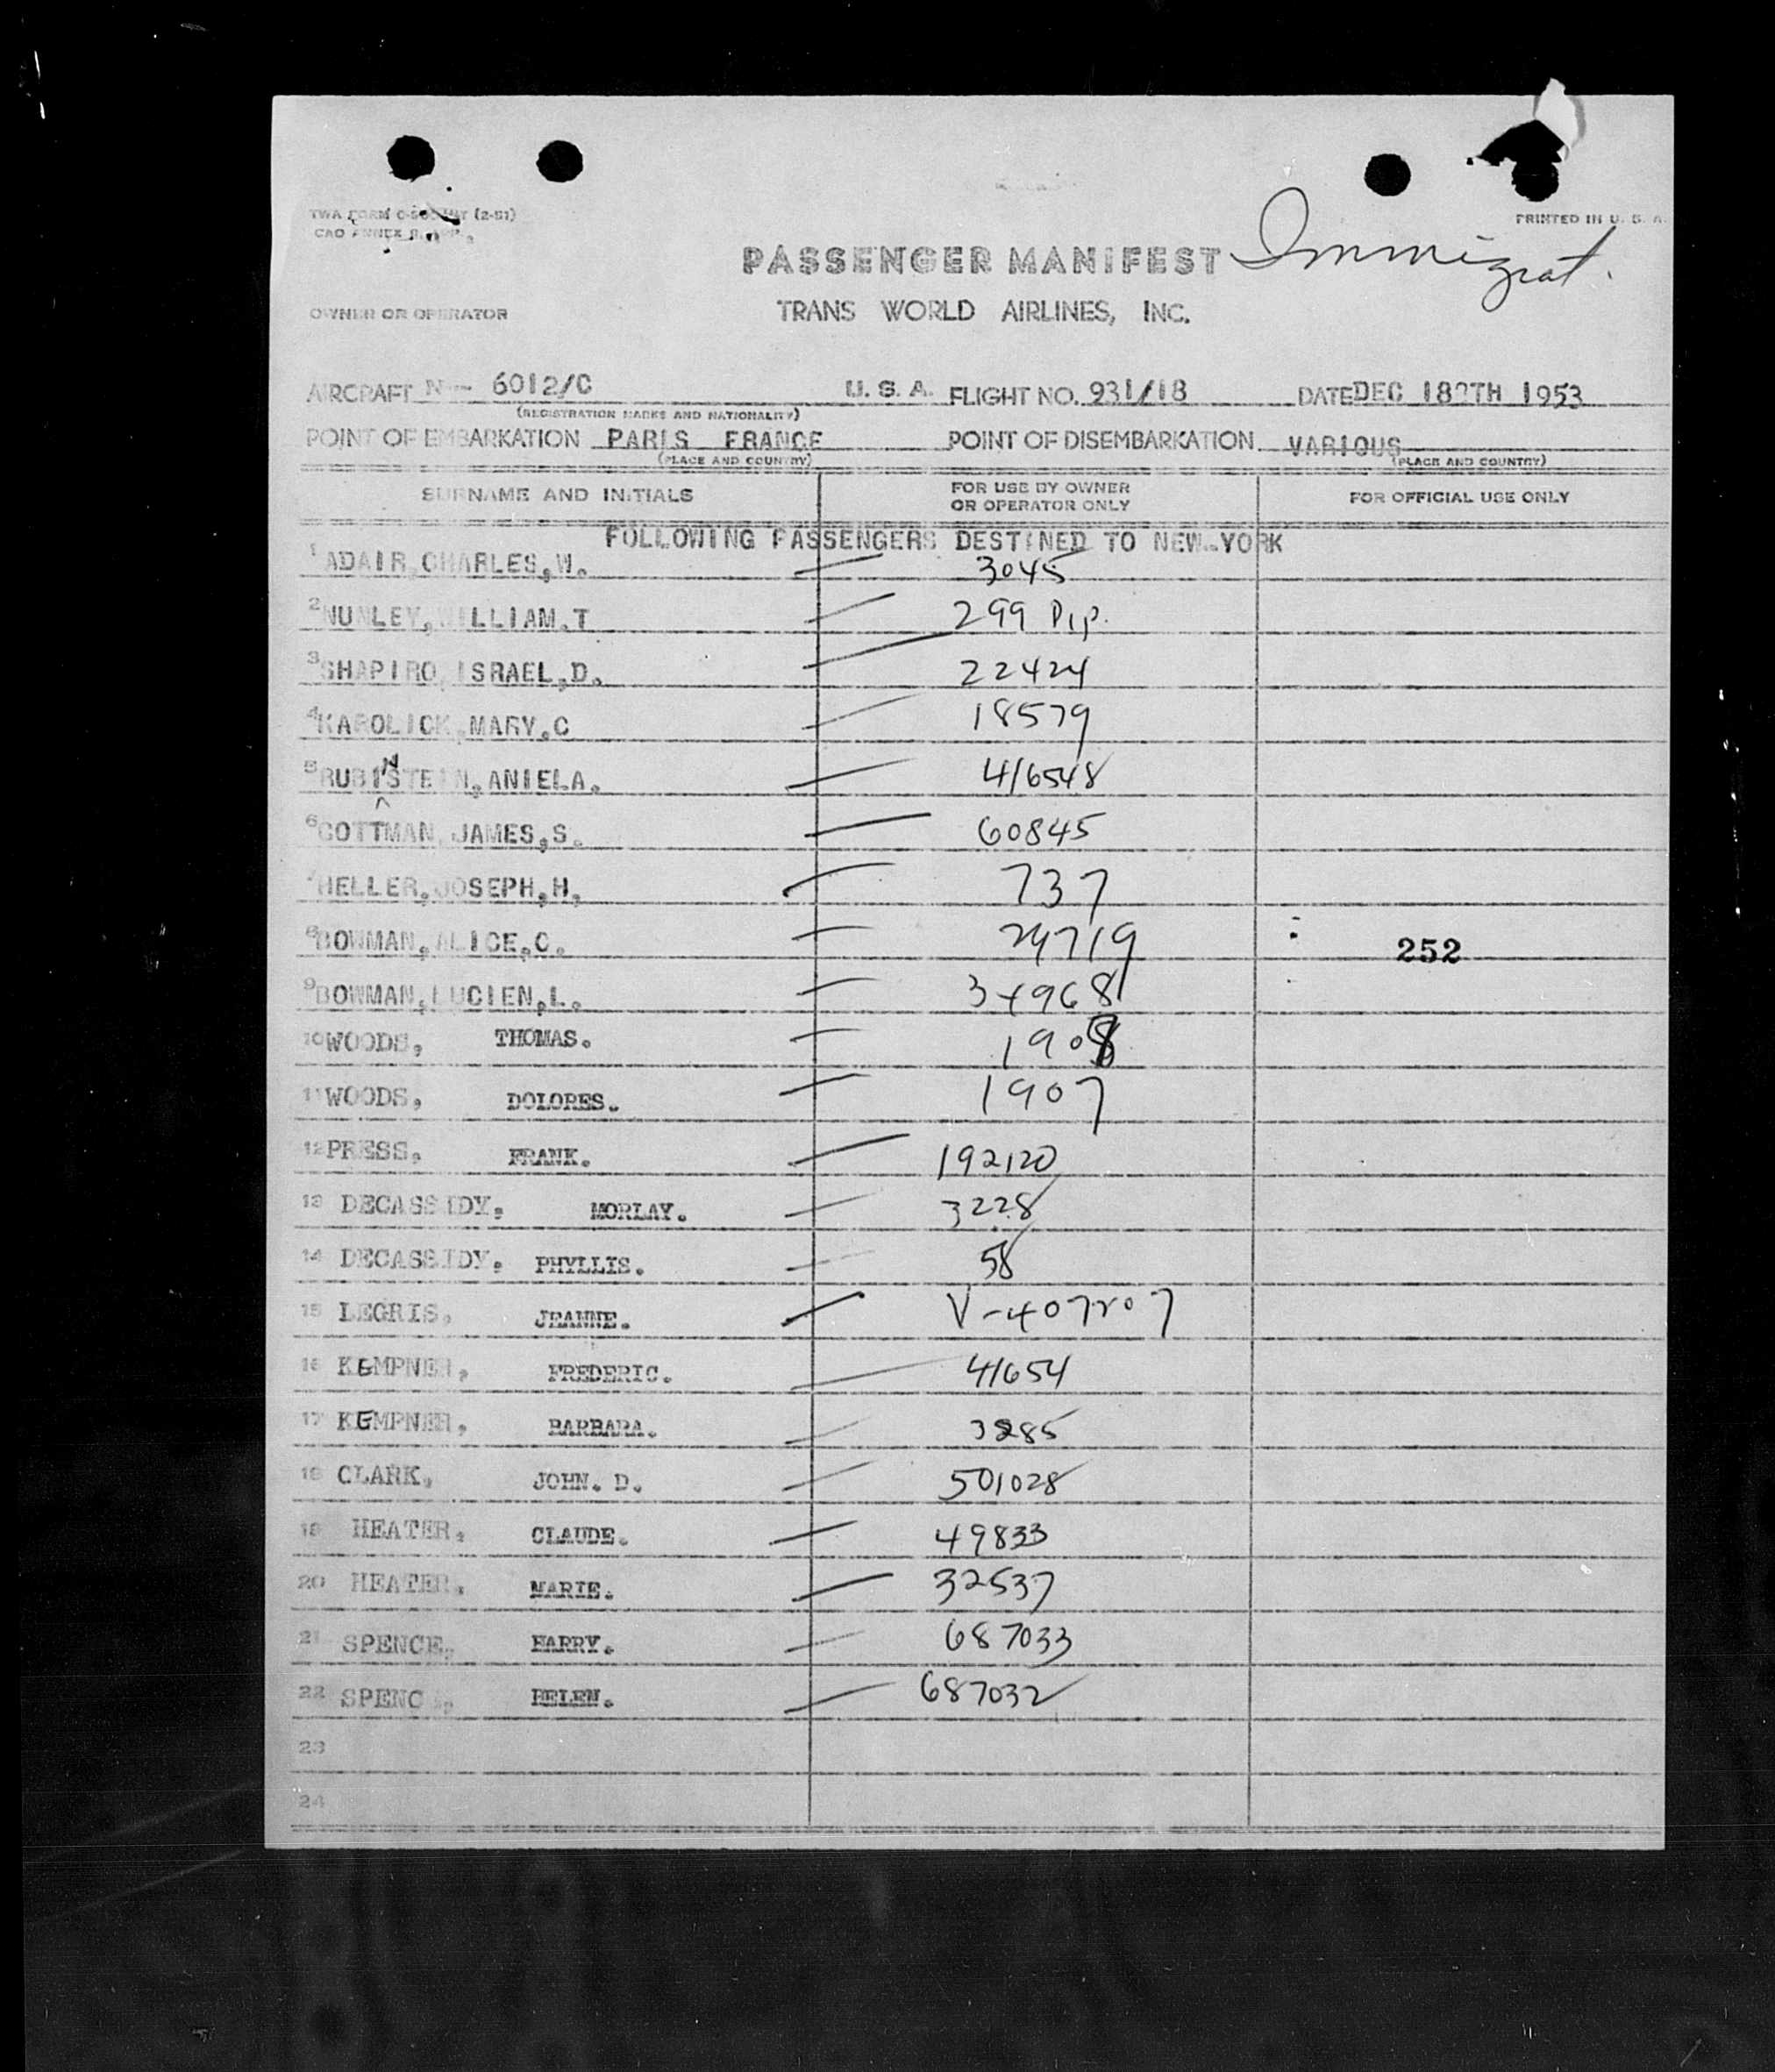 TWA FORM
PRINTED IN U. S. A.
CAO ANNEX
PASSENGER MANIFEST Immigrat.
OWNER OR OPERATOR
TRANS WORLD AIRLINES, INC.
AIRCRAFT N- 6012/C U. S. A. FLIGHT NO. 931/18 DATE DEC 18 TH 1953
(REGISTRATION MARKS AND NATIONALITY)
POINT OF EMBARKATION PARIS FRANCE POINT OF DISEMBARKATION VARIOUS
(PLACE AND COUNTRY) (PLACE AND COUNTRY)
SURNAME AND INITIALS FOR USE BY OWNER OR OPERATOR ONLY FOR OFFICIAL USE ONLY
FOLLOWING PASSENGERS DESTINED TO NEW-YORK
1 ADAIR, CHARLES, W. 3045
2 NUNLEY, WILLIAM.T 299 Dip.
3 SHAPIRO, ISRAEL, D. 22424
4 KAROLICK, MARY, C 18579
5 RUBINSTEIN, ANIELA. 416548
6 COTTMAN, JAMES, S. 60845
7 HELLER, JOSEPH, H. 737
8 BOWMAN, ALICE, C. 29719 252
9 BOWMAN, LUCIEN, L. 34968
10 WOODS, THOMAS. 1908
11 WOODS, DOLORES. 1907
12 PRESS, FRANK. 192120
13 DECASSIDY, MORLAY. 3228
14 DECASSIDY, PHYLLIS. 58
15 LEGRIS, JEANNE. V-407207
16 KEMPNER, FREDERIC. 41654
17 KEMPNER, BARBARA. 3285
18 CLARK, JOHN. D. 501028
19 HEATER, CLAUDE. 49833
20 HEATER, MARIE. 32537
21 SPENCE, HARRY. 687033
22 SPENC , HELEN. 687032
23
24